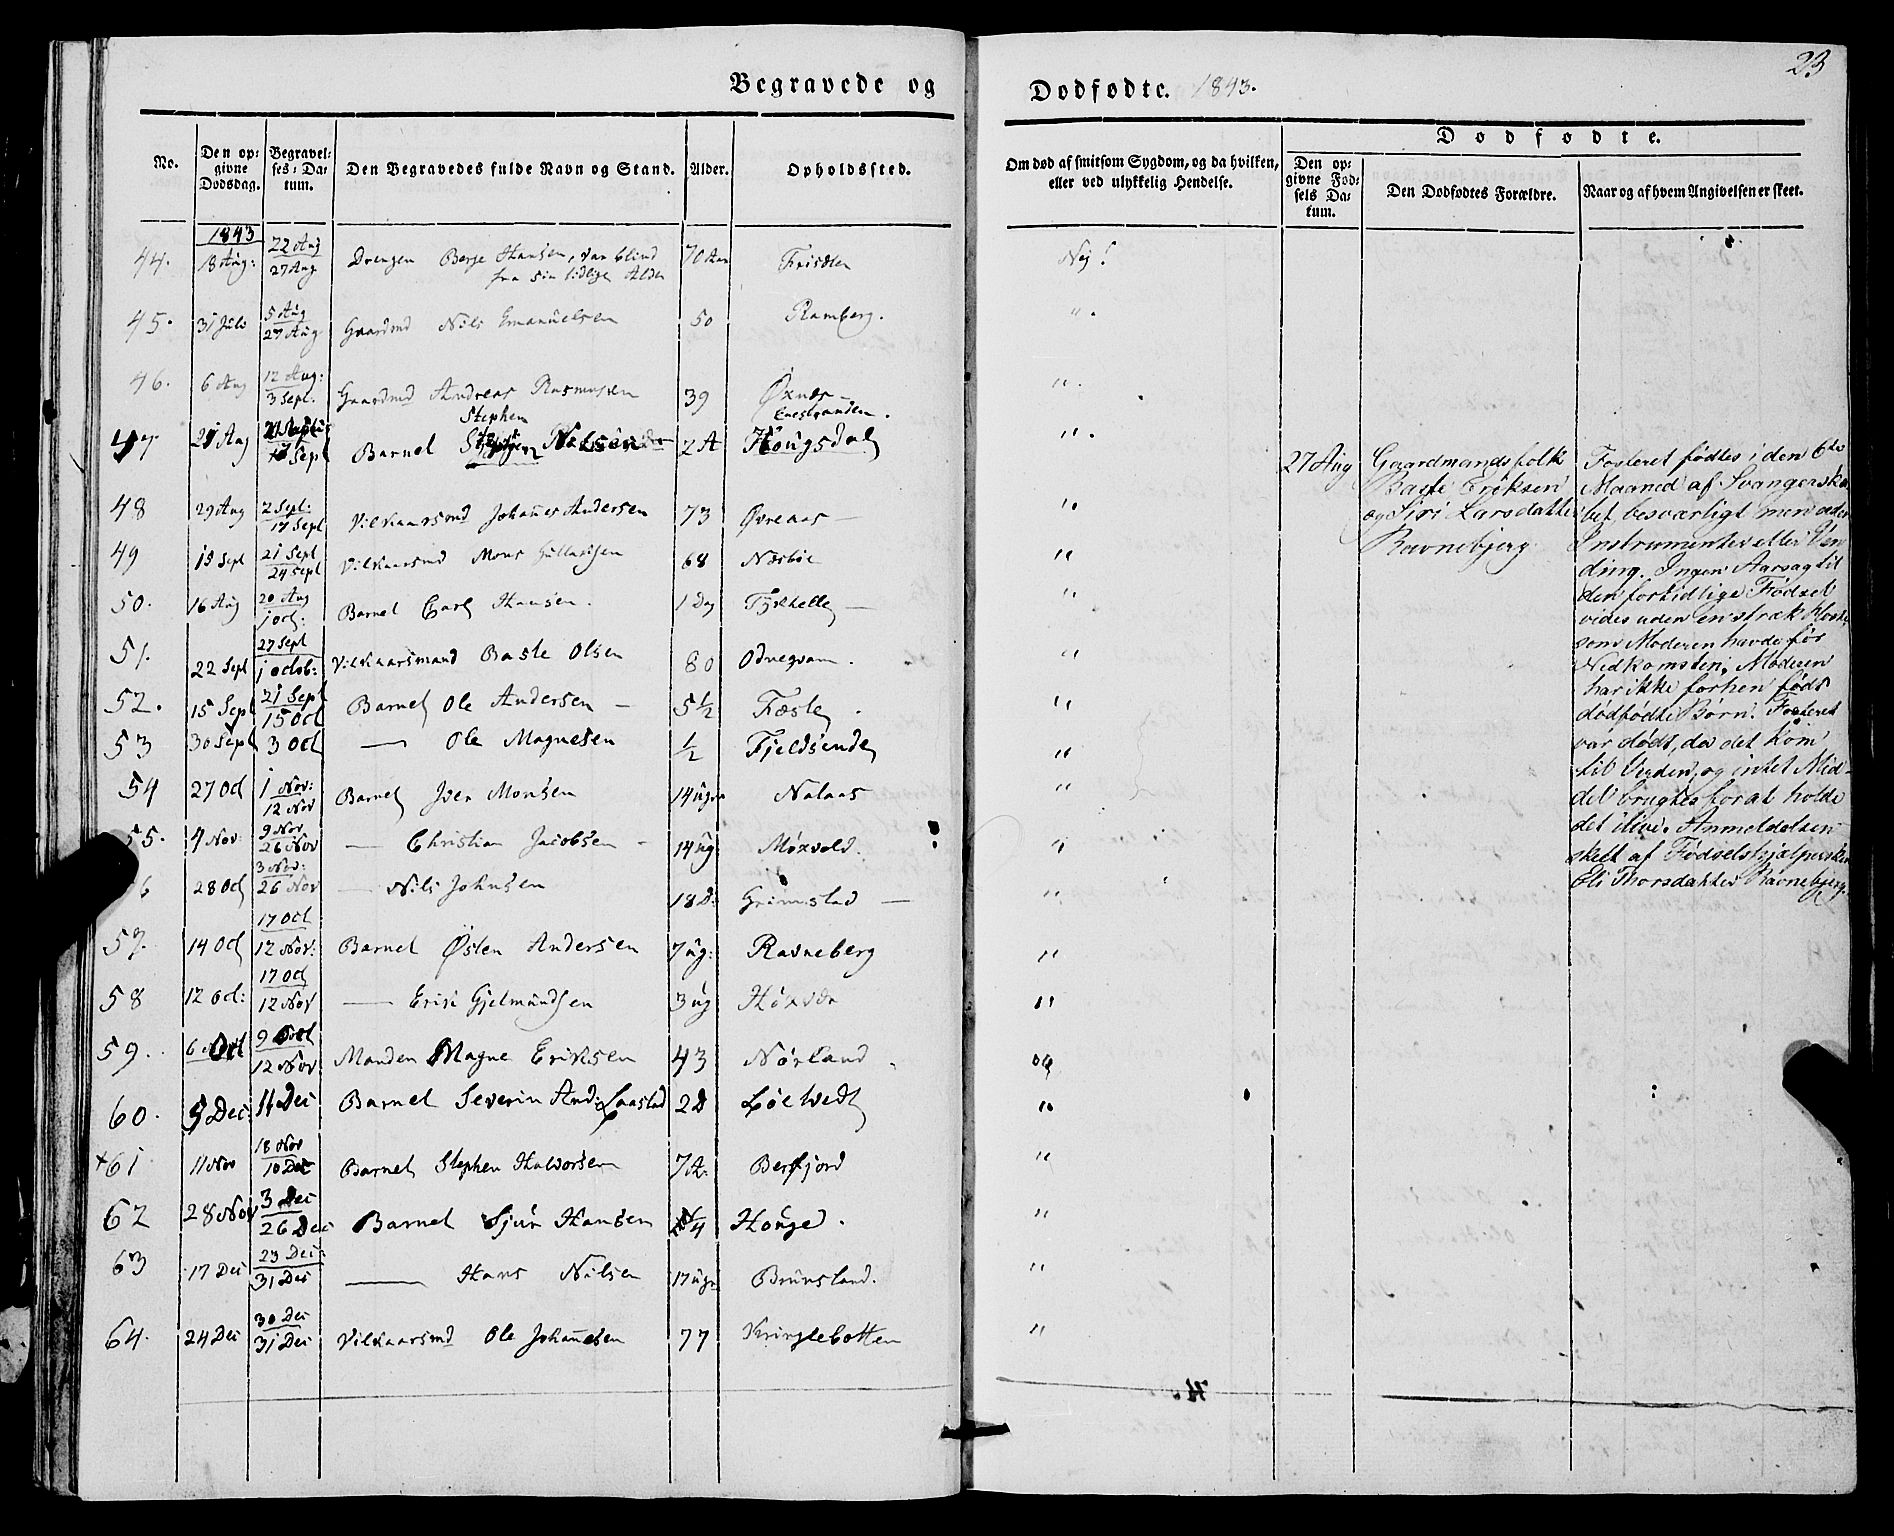 23
Begravede og Dødfødte. 1843.
No.
Den opgivne Dødsdag.
Begravelses-Datum.
Den Begravedes fulde Navn og Stand.
Alder.
Opholdssted.
Om død af smitsom Sygdom, og da hvilken, eller ved ulykkelig Hendelse.
Dødfødte.
Den opgivne Fødsels Datum.
Den Dødfødtes Forældre.
Naar og af hvem Angivelsen er skeet.
1843
44. 18 Aug: 22 Aug 27 Aug Drengen Berge Hansen, var blind fra sin tidlige Alder 70 Aar Nej!
45. 31 Juli 5 Aug 27 Aug Gaardmd Nils Emanuelsen 50 Ramberg. ".
46. 6 Aug 12 Aug: 3 Sept. Gaardmd Andreas Rasmussen 39 Øxnes ".
47 21 Aug 17 Sept Barnet Stephen Nelsen 2 A Hougsdal ".
48 29 Aug 2 Sept: 17 Sept Vilkaarsmd Johannes Andersen 73 Øvreaas — ".
49 15 Sept 21 Sept 24 Sept Vilkaarsmd Mons Gullacksen 68 Næsbøe "
50. 16 Aug 20 Aug 1 Oct: Barnet Carl Hansen. 1 Dag — "
51. 22 Sept 27 Sept 1 Octob: Vilkaarsmand Baste Olsen 80 Odnegvam. "
52. 15 Sept 21 Sept 15 Oct Barnet Ole Andersen — 5 1/2 Fæste. "
53 30 Sept 3 Oct — Ole Magnesen 1/2 Fjeldsende "
54 27 Oct 1 Nov: 12 Nov Barnet Iver Monsen 14 ugr Nalaas "
55. 4 Nov: 9 Nov 26 Nov — Christian Jacobsen 14 ug Moxvold. "
56 28 Oct 3 Nov: 26 Nov — Nils Johnsen 18 D: Grimstad — "
57. 14 Oct 17 Oct 12 Nov: Barnet Østen Andersen 7 ug: Ravneberg "
58 12 Oct: 17 Oct 12 Nov — Erik Gjelmundsen 3 ug "
59. 6 Oct 9 Oct 12 Nov Manden Magne Eriksen 43 Nørland "
60. 5 Dec: 11 Dec Barnet Severin And: Laastad 2 D Løtvedt "
+61 11 Nov 18 Nov 10 Dec Barnet Stephen Halvorsen 7 A: Berfjord "
62 28 Nov 3 Dec 26 Dec Barnet Sjur Hansen 1/4 Houge. "
63 17 Dec 23 Dec: 31 Dec — Hans Nilsen 17 ugr Brunsland. "
64. 24 Dec 30 Dec 31 Dec Vilkaarsmd Ole Johannesen 77 Kringlebotten "
27 Aug
Gaardmandsfolk
Baste Eriksen
og Siri Larsdatter
Ravnebjerg
Fosteret fødtes i den 6te
Maaned af Svangerska-
bet, besværligt men uden
Instrumenter eller Ven-
ding. Ingen Aarsag til
den fortidlige Fødsel
vides uden en stræk Hoste,
som Moderen havde før
Nedkomsten; Moderen
har ikke forhen født
dødfødte Børn. Fosteret
var dødt, da det kom
til Verden, og intet Mid-
del brugtes for at holde
det ilive. Anmeldelsen
skeet af Fødselshjælpersken
Eli Thorsdatter Ravnebjerg.